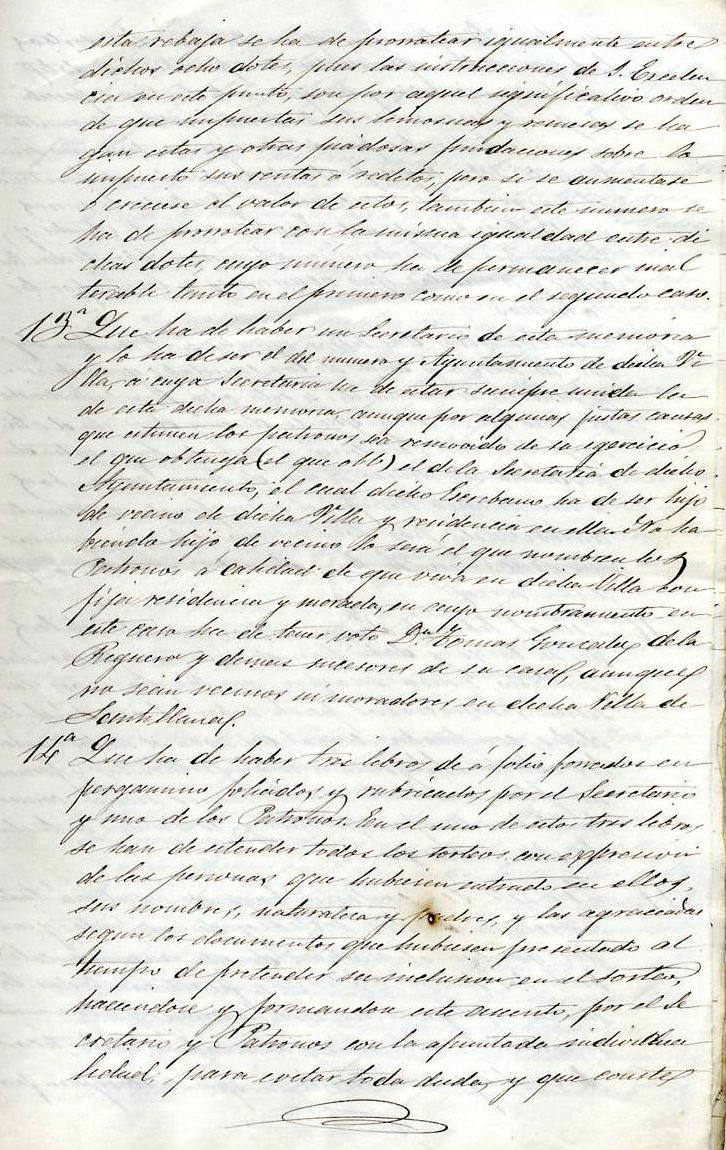 esta rebaja se ha de prorratear igualmente entre
dichos ocho dotes, pues las instrucciones de S. Excelen
cia en este punto, son por aquel significativo orden
de que impuestas sus limosnas y remesas se ha
gan estas y otras piadosas fundaciones sobre lo
impuesto sus rentas o reditos, pero si se aumentase
o creciese el valor de estos, tambien este numero se
ha de prorratear con la misma igualdad entre di
chas dotes, cuyo número ha de permanecer inal
terable tanto en el primero como en el segundo caso.
13ª Que ha de haber un Secretario de esta memoria
y lo ha de ser el del numero y Ayuntamiento de dicha Vi
lla, a cuya Secretaria ha de estar siempre unida la
de esta dicha memoria, aunque por algunas justas causas
que estimen los patronos sea removido de su egercicio
el que obtenga (el que obt) el de la Secretaria de dicho
Ayuntamiento, el cual dicho Escribano ha de ser hijo
de vecino de dicha Villa y residencia en ella. No ha
biendo hijo de vecino lo será el que nombren los
Patronos a calidad de que viva en dicha Villa con
fija residencia y morada, en cuyo nombramiento en
este caso ha de tener voto Dn. Tomas Gonzalez de la
Reguera y demas sucesores de su casa, aunque
no sean vecinos ni moradores en dicha Villa de
Santillana.
14ª Que ha de haber tres libros de á folio forrados en
pergamino foliados y rubricados por el Secretario
y uno de los Patronos. En el uno de estos tres libros
se han de estender todos los sorteos con expresion
de las personas que hubiesen entrado en ellos,
sus nombres, naturaleza y padres, y las agraciadas
segun los documentos que hubiesen presentado al
tiempo de pretender su inclusion en el sorteo,
haciendose y formandose este asiento, por el Se
cretario y Patronos con la apuntada individua
lidad, para evitar toda duda, y que conste